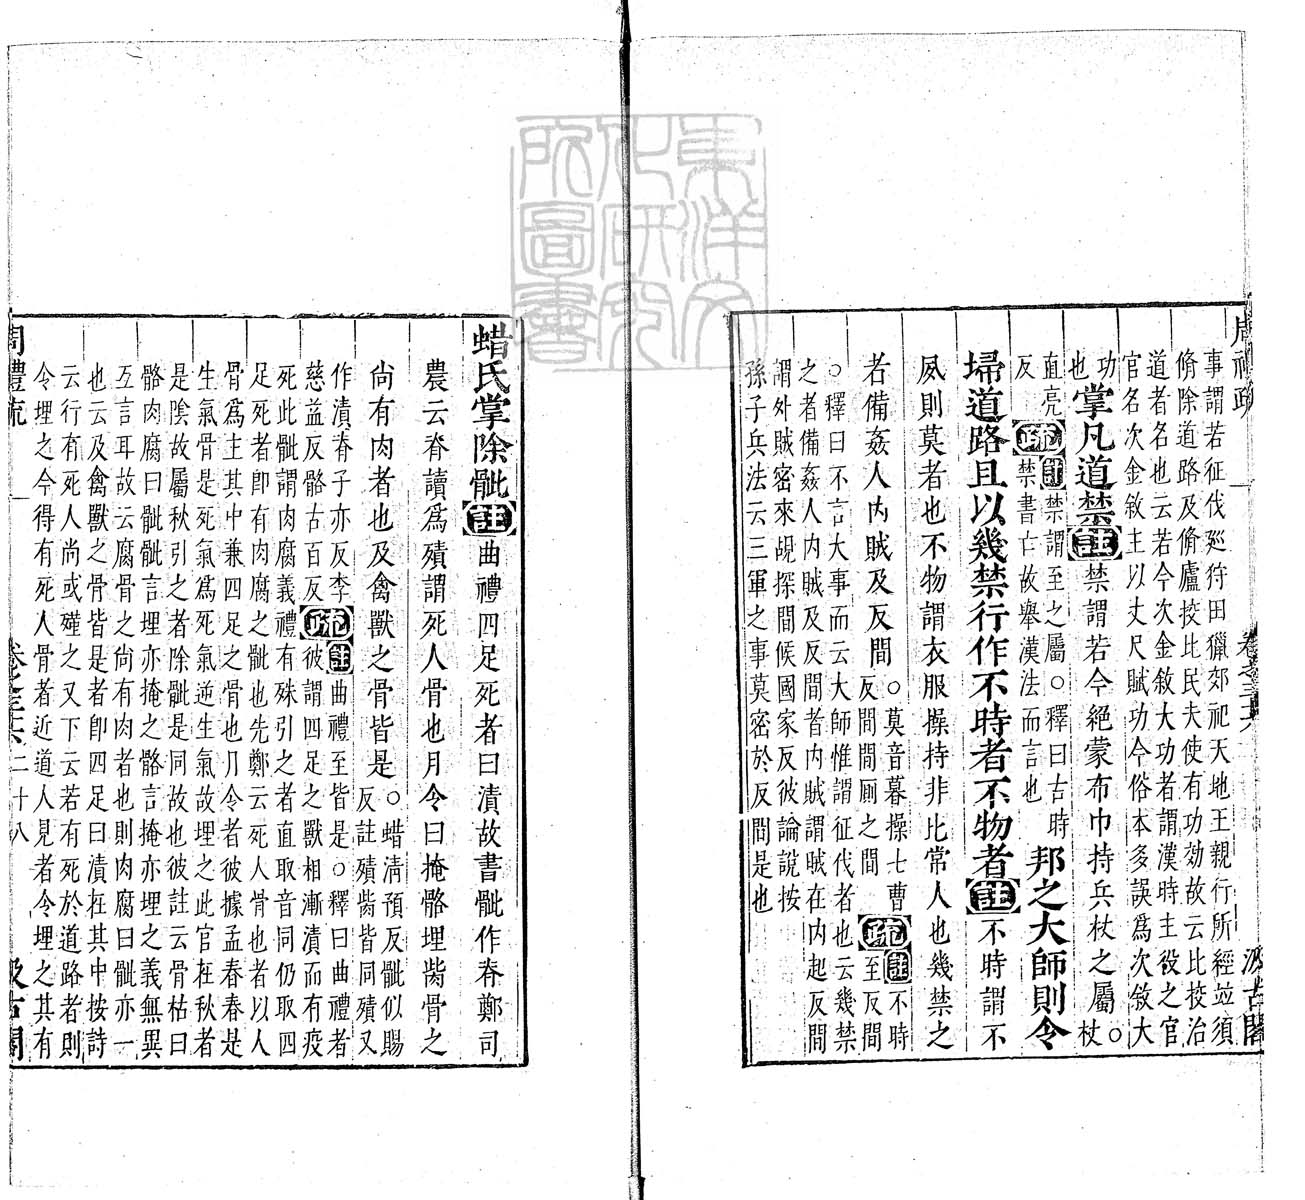 事謂若征伐廵狩田獵郊祀天地王親行所經並須
脩除道路及脩廬挍比民夫使有功効故云比挍治
道者名也云若今次金敘大功者謂漢時主役之官
官名次金敘主以丈尺賦功今俗本多誤爲次敘大
功
也
掌凡道禁
註
禁謂若今絕蒙布巾持兵杖之屬
○
杖
直亮
反
疏
註禁謂至之屬○釋曰古時
禁書亡故舉漢法而言也
邦之大師則令
埽道路且以幾禁行作不時者不物者
註
不時謂不
夙則莫者也不物謂衣服操持非比常人也幾禁之
若備姦人内賊及反間
○莫音暮操七曹
反間間厠之間
疏
註不時
至反間
○釋曰不言大事而云大師惟謂征伐者也云幾禁
之者備姦人内賊及反間者内賊謂賊在内起反間
謂外賊密來覘探間候國家反彼論說按
孫子兵法云三軍之事莫密於反間是也
蜡氏掌除骴
註
曲禮四足死者曰漬故書骴作脊鄭司
農云脊讀爲殰謂死人骨也月令曰掩骼埋胔骨之
尚有肉者也及禽獸之骨皆是
○蜡淸預反骴似賜
反註殰胔皆同殰又
作漬脊子亦反李
慈益反骼古百反
疏
註曲禮至皆是○釋曰曲禮者
彼謂四足之獸相漸漬而有疫
死此骴謂肉腐義禮有殊引之者直取音同仍取四
足死者卽有肉腐之骴也先鄭云死人骨也者以人
骨爲主其中兼四足之骨也月令者彼據孟春春是
生氣骨是死氣爲死氣逆生氣故埋之此官在秋者
是陰故屬秋引之者除骴是同故也彼註云骨枯曰
骼肉腐曰骴骴言埋亦掩之骼言掩亦埋之義無異
互言耳故云腐骨之尙有肉者也則肉腐曰骴亦一
也云及禽獸之骨皆是者卽四足曰漬在其中按詩
云行有死人尚或殣之又下云若有死於道路者則
令埋之今得有死人骨者近道人見者令埋之其有
周禮疏
卷之三十六
二十八
汲古閣
東洋文化研究所圖書